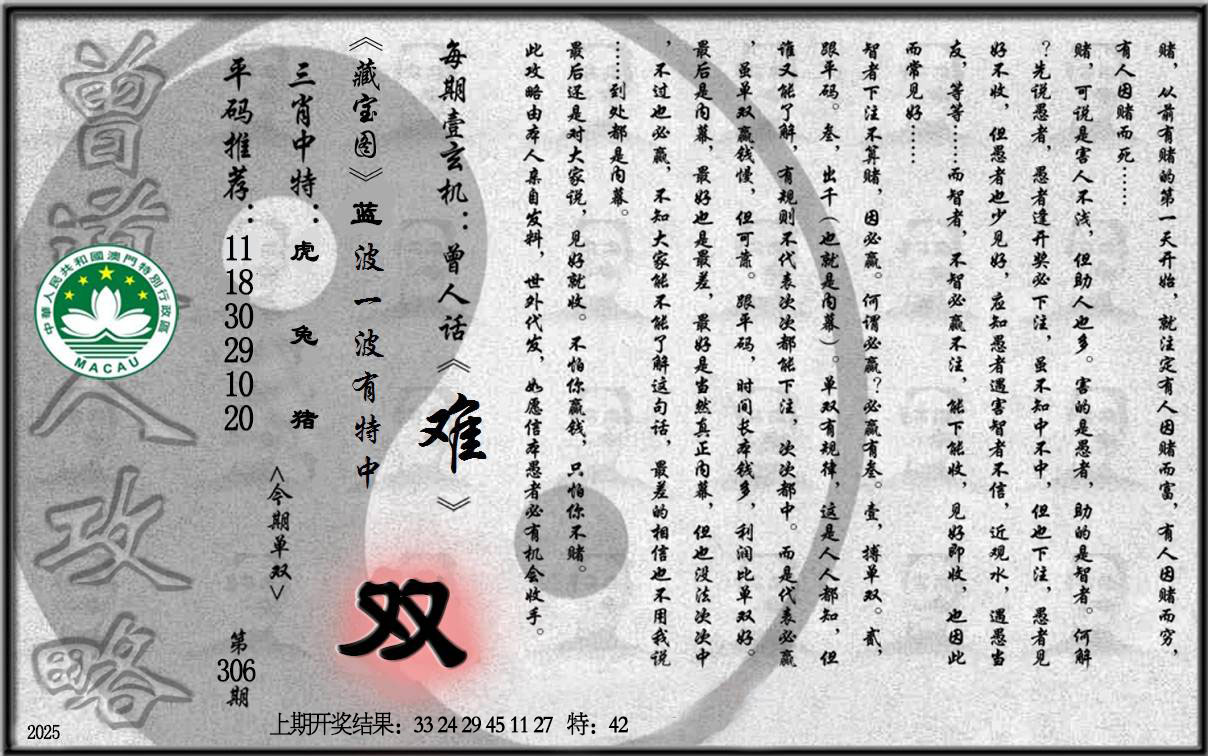 赌，从前有赌的第一天开始，就注定有人因赌而富，有人因赌而穷，
有人因赌而死……
赌，可说是害人不浅，但助人也多。害的是愚者，助的是智者。何解
？先说愚者，愚者逢开奖必下注，虽不知中不中，但也下注，愚者见
好不收，但愚者也少见好，应知愚者遇害智者不信，近观水，遇愚当
友，等等……而智者，不智必赢不注，能下能收，见好即收，也因此
而常见好……
智者下注不算赌，因必赢。何谓必赢？必赢有叁。壹，搏单双。贰，
跟平码。叁，出千（也就是内幕）。单双有规律，这是人人都知，但
谁又能了解，有规则不代表次次都能下注，次次都中。而是代表必赢
，虽单双赢钱慢，但可靠。跟平码，时间长本钱多，利润比单双好。
最后是内幕，最好也是最差，最好是当然真正内幕，但也没法次次中
，不过也必赢，不知大家能不能了解这句话，最差的相信也不用我说
……到处都是内幕。
最后还是对大家说，见好就收。不怕你赢钱，只怕你不赌。
此攻略由本人亲自发料，世外代发，如愿信本愚者必有机会收手。
每期壹玄机：曾人话《难》
《藏宝图》蓝波一波有特中
双
三肖中特：虎 兔 猪
<今期单双>
平码推荐：
11
18
30
29
10
20
第
306
期
曾道人攻略
中華人民共和國澳門特別行政區
MACAU
上期开奖结果：33 24 29 45 11 27 特：42
2025